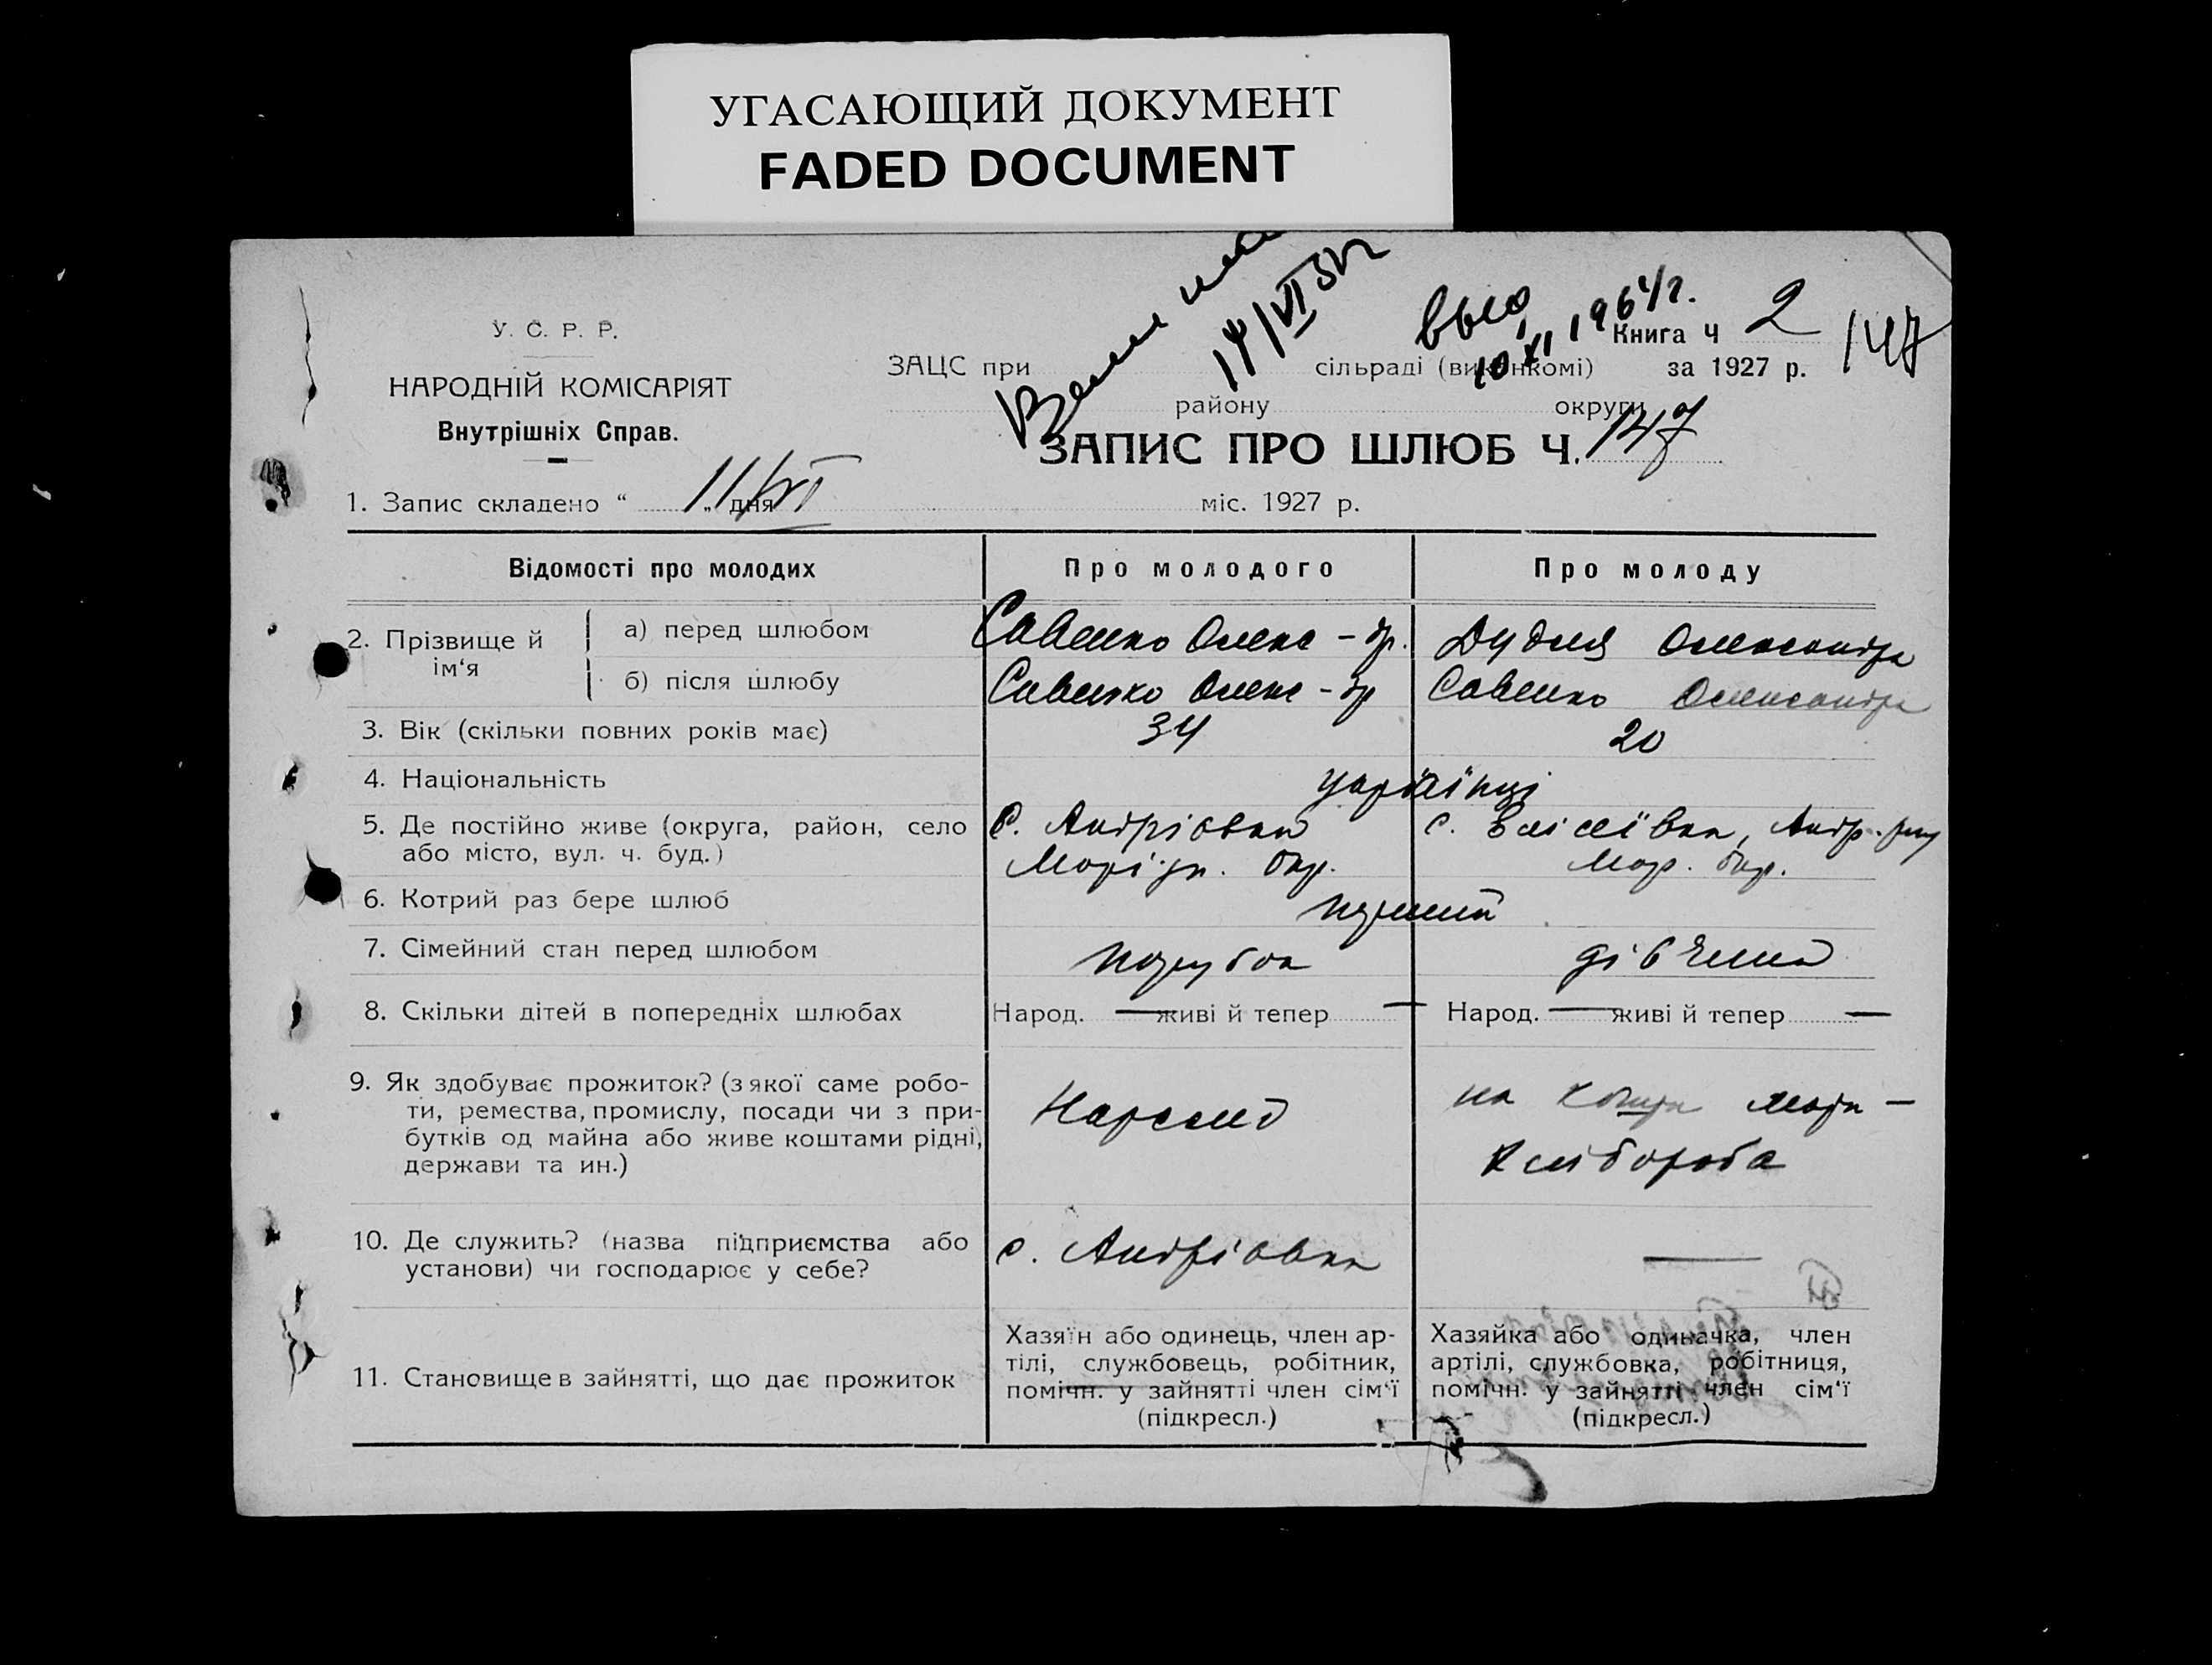 УГАСАЮЩИЙ ДОКУМЕНТ
FADED DOCUMENT
У. С. Р. Р.
НАРОДНІЙ КОМІСАРІЯТ
Внутрішніх Справ.
14/VI
выд.
10 XI 1964 г.
Книга Ч 2
147
ЗАЦС при сільраді (виконкомі) за 1927 р.
району округи
ЗАПИС ПРО ШЛЮБ Ч. 147
1. Запис складено “ 11/VI „ дня міс. 1927 р.
Відомості про молодих Про молодого Про молоду
2. Прізвище й ім‘я
а) перед шлюбом Савенко Олекс-др. Дудля Олександра
б) після шлюбу Савенко Олекс-др Савенко Олександра
3. Вік (скільки повних років має) 34 20
4. Національність українці
5. Де постійно живе (округа, район, село с. Андріовка с. Єлісеївка, Андр.
або місто, вул. ч. буд.) Маріуп. окр. Мар. окр.
6. Котрий раз бере шлюб перший
7. Сімейний стан перед шлюбом парубок дівчина
8. Скільки дітей в попередніх шлюбах Народ. — живі й тепер — Народ. — живі й тепер —
9. Як здобуває прожиток? (з якої саме робо-
ти, ремества, промислу, посади чи з при-
бутків од майна або живе коштами рідні,
держави та ин.)
Нарслід
на кошти
хлібороба
10. Де служить? (назва підприємства або с. Андріовка —
установи) чи господарює у себе?
11. Становище в зайнятті, що дає прожиток
Хазяїн або одинець, член ар-
тілі, службовець, робітник,
помічн. у зайнятті член сім‘ї
(підкресл.)
Хазяйка або одиначка, член
артілі, службовка, робітниця,
помічн. у зайнятті член сім‘ї
(підкресл.)